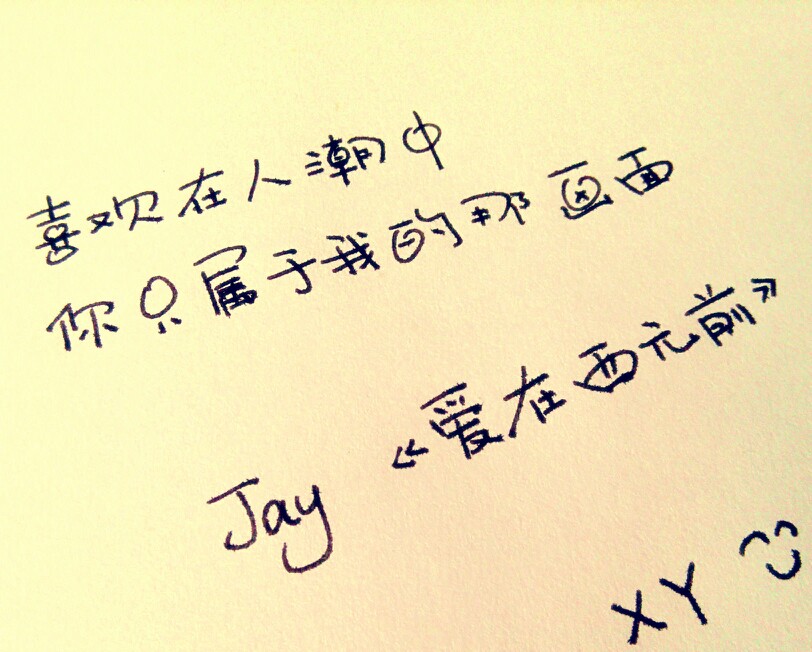 喜欢在人潮中
你只属于我的那画面
《爱在西元前》
Jay
XY